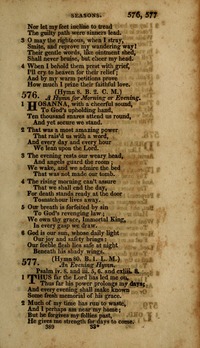 SEASONS. 576, 577
Nor let my feet incline to tread
The guilty path were sinners lead.
3 O may the righteous, when I stray,
Smite, and reprove my wandering way!
Their gentle words, like ointment shed,
Shall never bruise, but cheer my head.
4 When I behold them prest with grief,
I'll cry to heaven for their relief;
And by my warm petitions prove
How much I prize their faithful love.
576. (Hymn 8. B. 2. C. M.)
A Hymn for Morning or Evening.
1 HOSANNA, with a cheerful sound,
To God's upholding hand,
Ten thousand snares attend us round,
And yet secure we stand.
2 That was a most amazing power
That rais'd us with a word,
And every day and every hour
We lean upon the Lord.
3 The evening rests our weary head,
And angels guard the room;
We wake, and we admire the bed
That was not made our tomb.
4 The rising morning can't assure
That we shall end the day,
For death stands ready at the door
To snatch our lives away.
5 Our breath is forfeited by sin
To God's revenging law;
We own thy grace, Immortal King,
In every gasp we draw.
6 God is our sun, whose daily light
Our joy and safety brings;
Our feeble flesh lies safe at night
Beneath his shady wings.
577. (Hymn 80. B. 1. L. M.)
An Evening Hymn.
Psalm iv. 8. and iii. 5, 6. and cxliii. 8.
1 THUS far the Lord has led me on,
Thus far his power prolongs my days;
And every evening shall make known
Some fresh memorial of his grace.
2 Much of my time has run to waste,
And I perhaps am near my home;
But he forgives my follies past,
He gives me strength for days to come.
569 53*